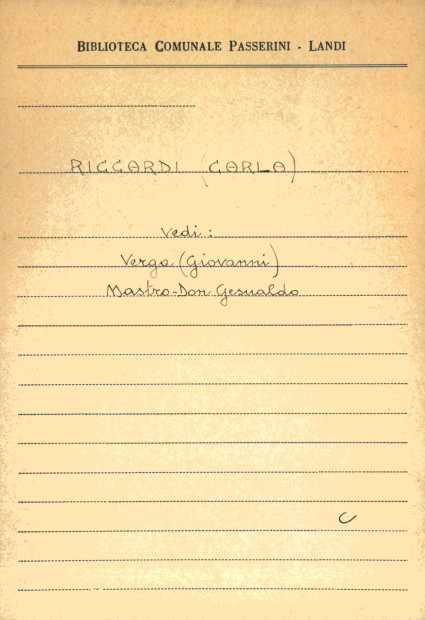 BIBLIOTECA COMUNALE PASSERINI - LANDI
RICCARDI (CARLA)
Vedi :
Verga (Giovanni)
Mastro-Don Gesualdo
C